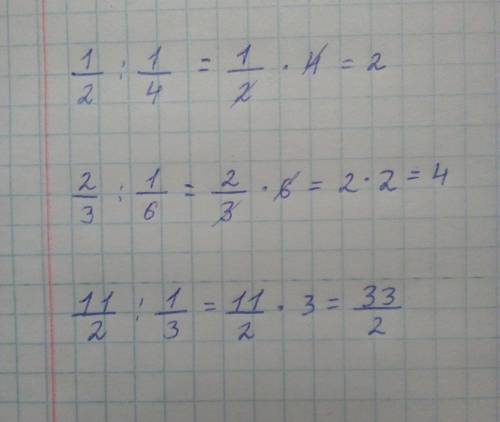 1/2 : 1/4 = 1/2 · 4 = 2
2/3 : 1/6 = 2/3 · 6 = 2 · 2 = 4
11/2 : 1/3 = 11/2 · 3 = 33/2